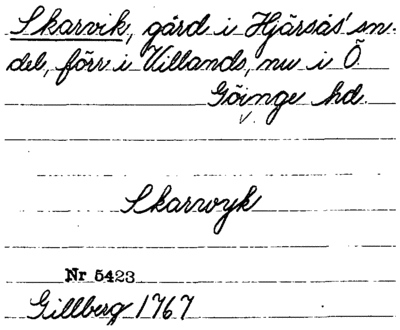 Skarvik, gård i Hjärsås' sn.
del, förr i Villands, nu i Ö
Göinge hd.
Skarwyk
Nr 5423
Gillberg 1767